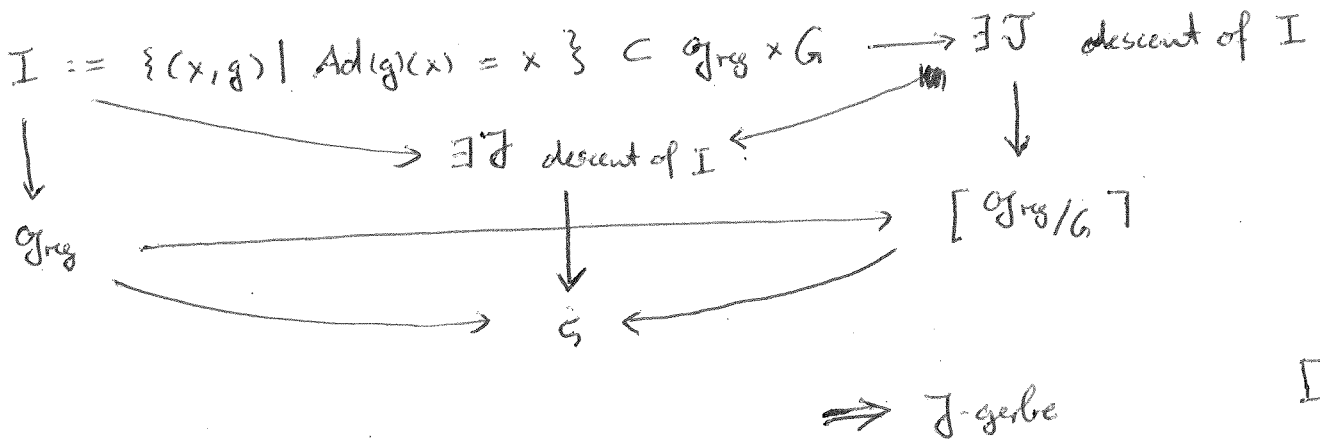 I := {(x,g) | Ad(g)(x) = x } ⊂ 𝔤reg × G → ∃ J descent of I
∃ J descent of I
𝔤reg
[𝔤reg/G]
𝔠
⇒ J-gerbe
[